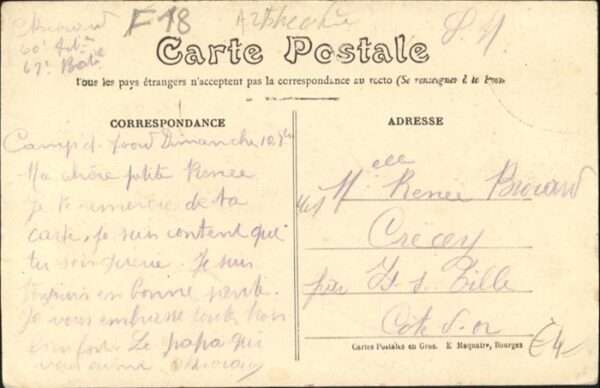 F 18
S. M
60e Art
67e Bat
Carte Postale
Tous les pays étrangers n'acceptent pas la correspondance au recto (Se renseigner à la
CORRESPONDANCE
Camp d. Dimanche 10
Ma chère petite Renée
Je te remercie de ta
carte, je suis content que
tu sois guerie. Je suis
toujours en bonne santé.
Je vous embrasse tous bien
fort. Le papa qui
vous aime
ADRESSE
Melle Renée Brouard
Crécey
par Is s. Tille
Côte d'or
Cartes Postales en Gros. E. Maquaire, Bourges